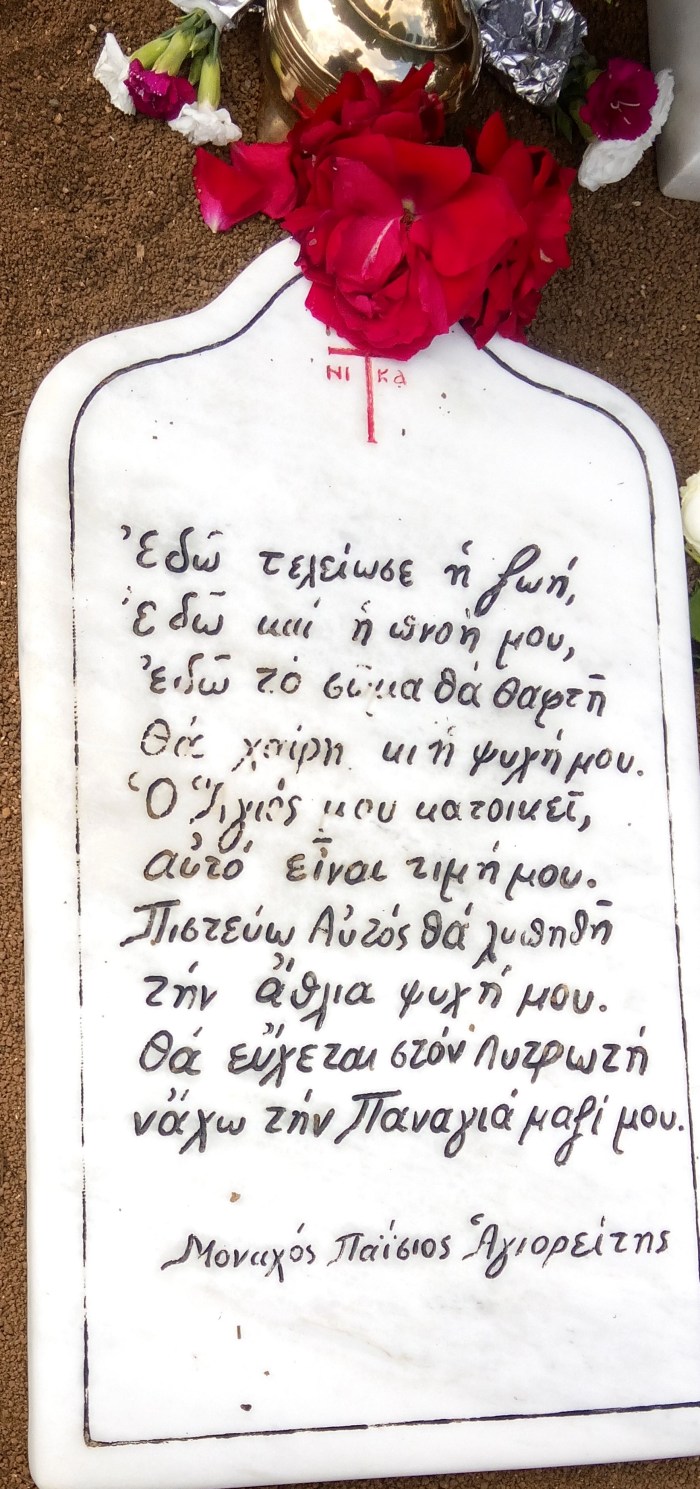 ΝΙ ΚΑ
Ἐδῶ τελείωσε ἡ ζωή,
Ἐδῶ καί ἡ πνοή μου,
ἐδῶ τό σῶμα θά θαφτῆ
Θά χαίρη κι ἡ ψυχή μου.
Ὁ Ἅγιός μου κατοικεῖ,
αὐτό εἶναι τιμή μου.
Πιστεύω Αὐτός θά λυπηθῆ
τήν ἄθλια ψυχή μου.
Θά εὔχεται στόν Λυτρωτή
νἄχω τήν Παναγιά μαζί μου.
Μοναχός Παΐσιος Ἁγιορείτης